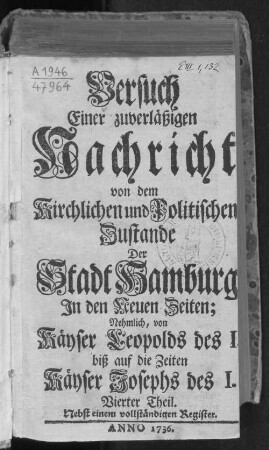 A 1946
47964
E III 1, 132
Versuch
Einer zuverläßigen
Nachricht
von dem
Kirchlichen und Politischen
Zustande
Der
Stadt Hamburg
In den Neuen Zeiten;
Nehmlich, von
Käyser Leopolds des I.
biß auf die Zeiten
Käyser Josephs des I.
Vierter Theil.
Nebst einem vollständigen Register.
ANNO 1736.